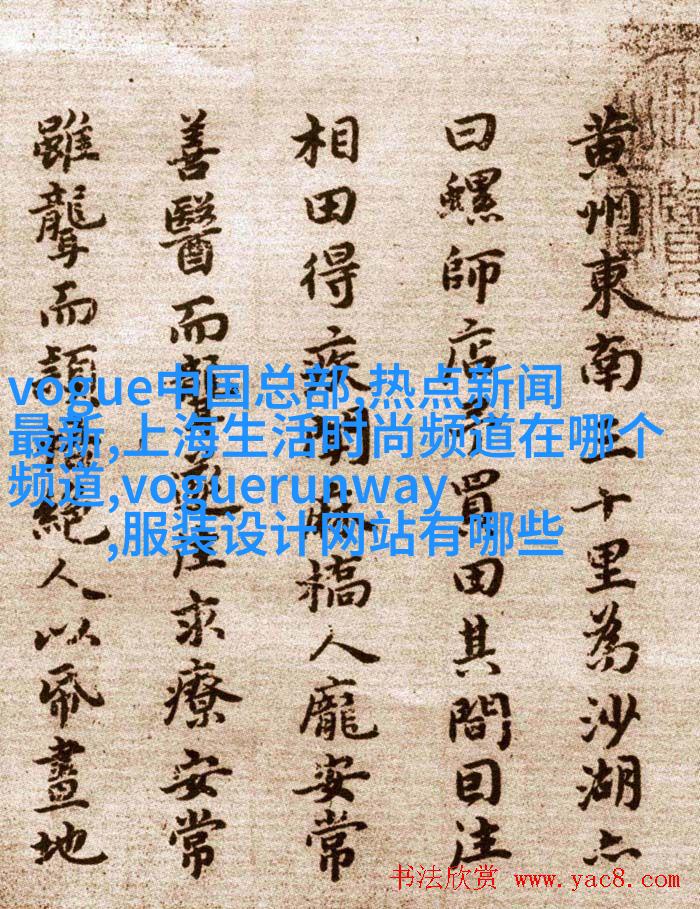 黄州東南三十里為沙湖亦
曰螺師店予買田其間因往
相田得疾聞麻橋人龐安常
善醫而聾遂往求療安常
雖聾而穎悟絕人以紙畫地
vogue中国总部,热点新闻
最新,上海生活时尚频道在哪个
频道,voguerunway
,服装设计网站有哪些
书法欣赏 www.yac8.com